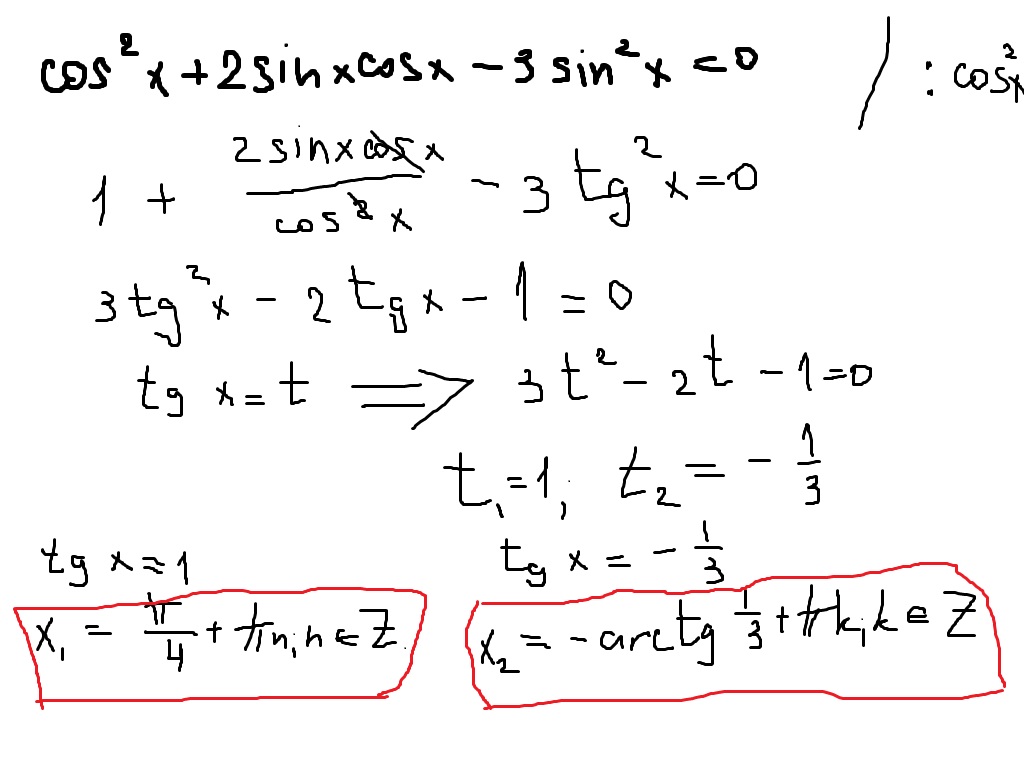 cos²x + 2sinxcosx − 3sin²x = 0 / : cos²x
1 + 2sinxcosx / cos²x − 3tg²x = 0
3tg²x − 2tgx − 1 = 0
tg x = t ⇒ 3t² − 2t − 1 = 0
t₁ = 1, t₂ = − 1/3
tg x = 1 tg x = − 1/3
x₁ = π/4 + πn, n ∈ Z x₂ = − arctg 1/3 + πk, k ∈ Z